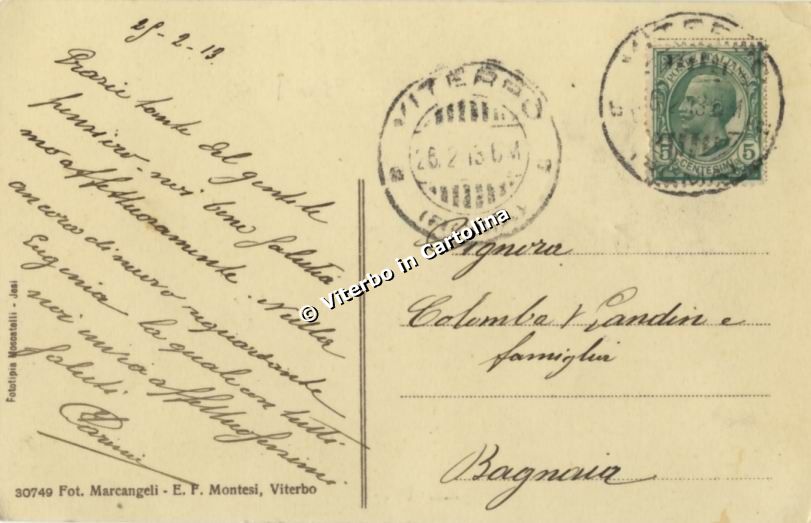 25-2-13.
Grazie tante del gentile
pensiero, noi bene salutia
mo affettuosamente. Nulla
ancora di nuovo riguardante
Eugenia la quale con tutti
noi invia affettuosissimi
saluti
Fototipia Moscatelli - Jesi
30749 Fot. Marcangeli - E. F. Montesi, Viterbo
VITERBO
26.2.13.6M
VITERBO
POSTE ITALIANE
5 CENTESIMI 5
© Viterbo in Cartolina
Signora
Colomba e
famiglia
Bagnaia